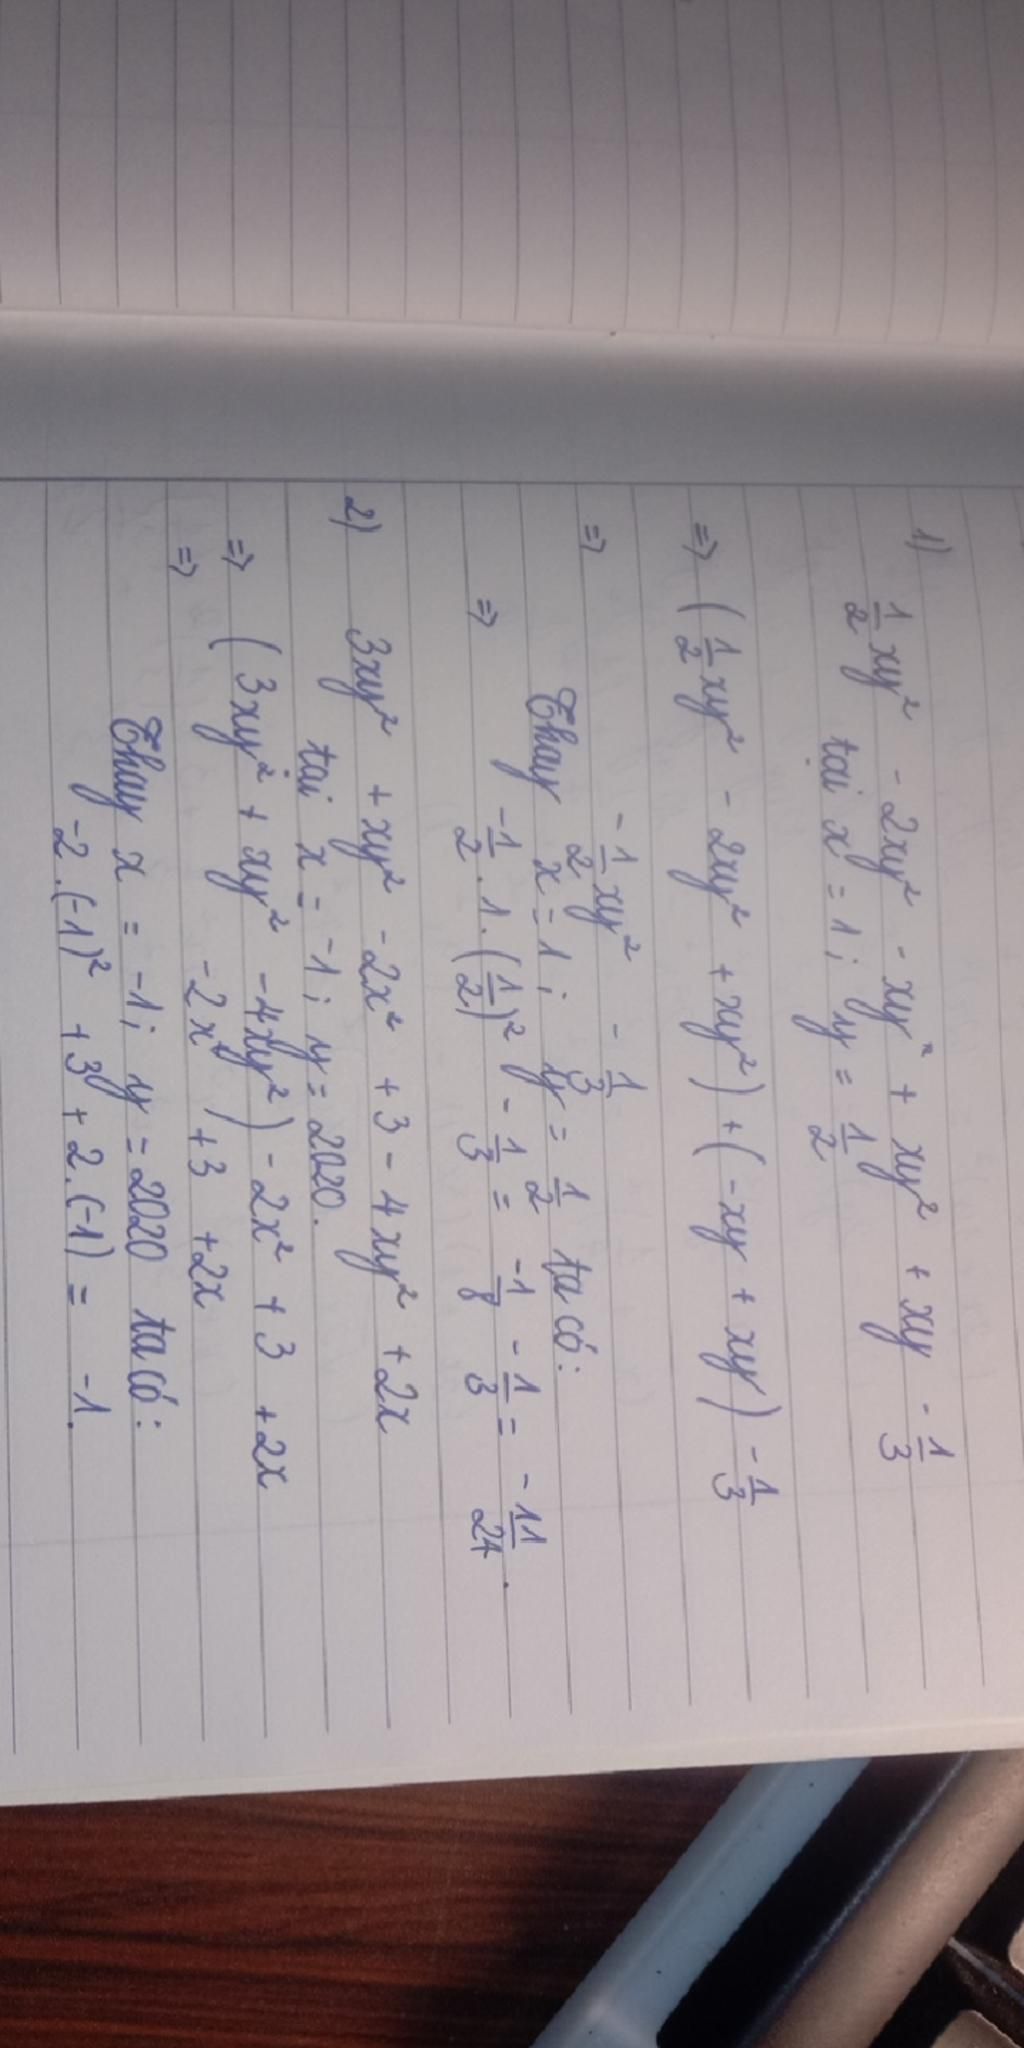 1) 1/2 xy² - 2xy² - xy + xy² + xy - 1/3
tại x = 1; y = 1/2
=> (1/2 xy² - 2xy² + xy²) + (-xy + xy) - 1/3
=> -1/2 xy² - 1/3
Thay x = 1; y = 1/2 ta có:
=> -1/2 . 1 . (1/2)² - 1/3 = -1/8 - 1/3 = -11/24.
2) 3xy² + xy² - 2x² + 3 - 4xy² + 2x
tại x = -1; y = 2020.
=> (3xy² + xy² - 4xy²) - 2x² + 3 + 2x
=> -2x² + 3 + 2x
Thay x = -1; y = 2020 ta có:
-2.(-1)² + 3 + 2.(-1) = -1.